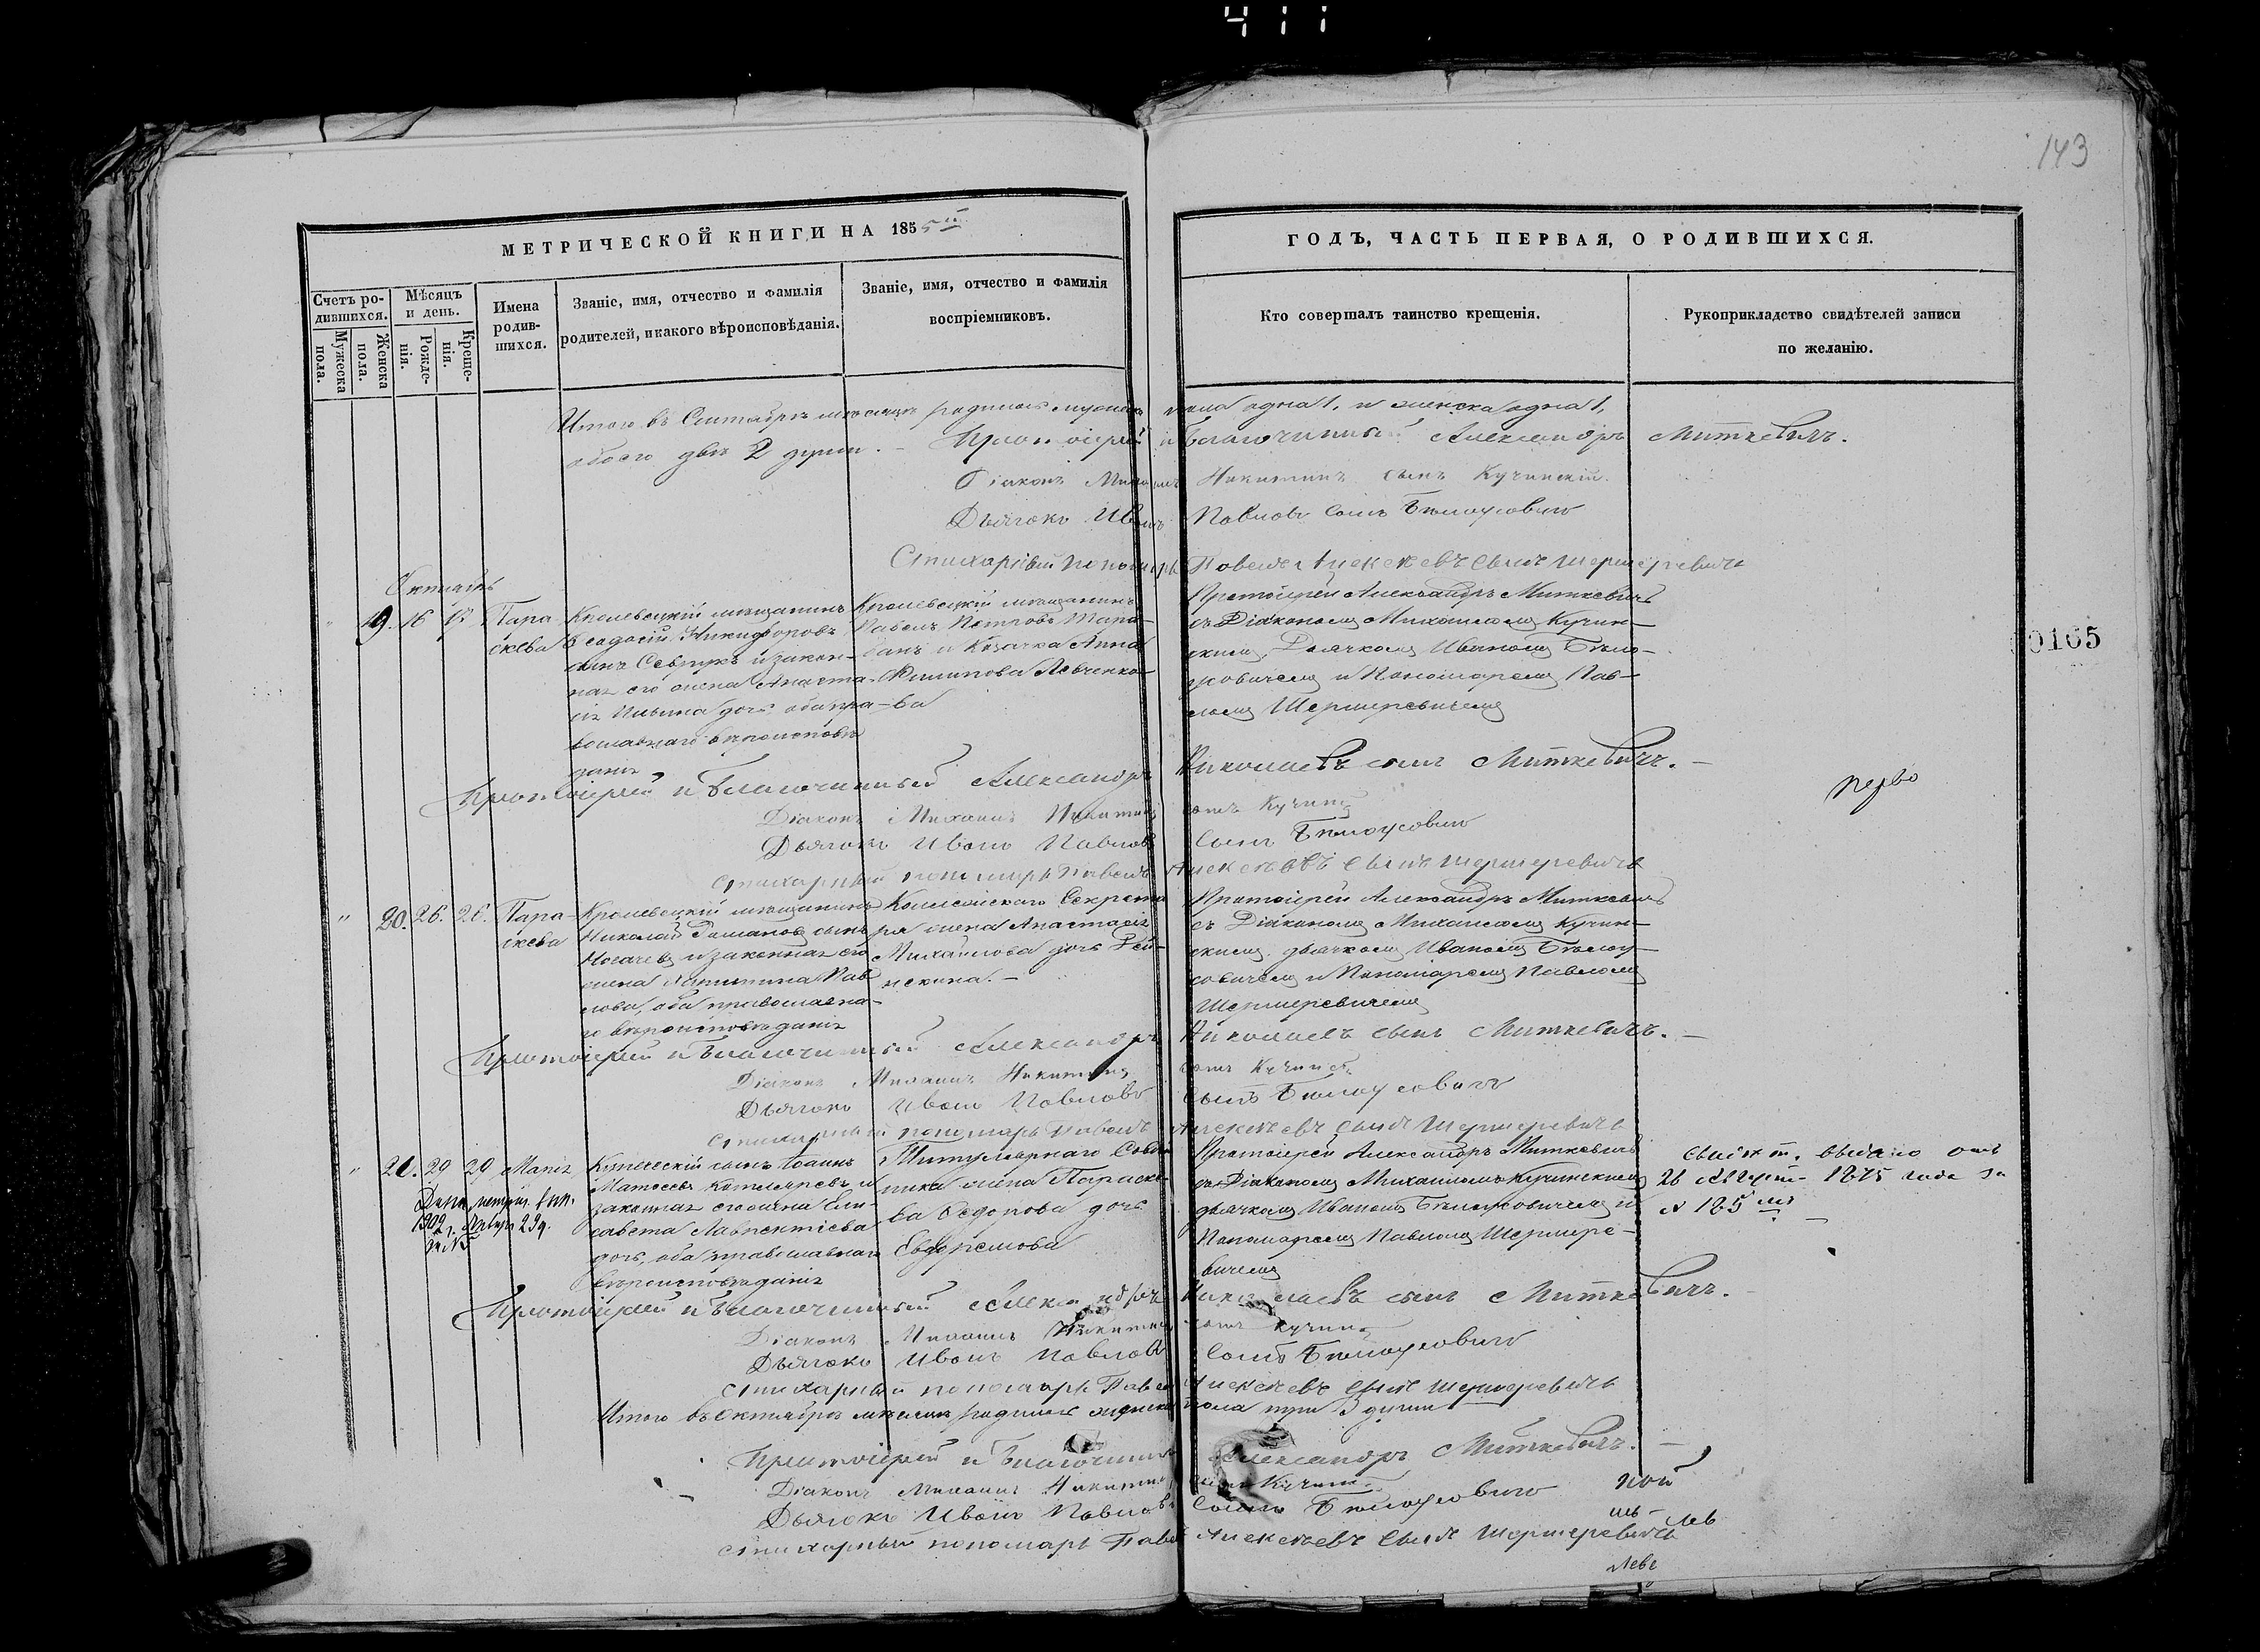 143
МЕТРИЧЕСКОЙ КНИГИ НА 1855й
ГОДЪ, ЧАСТЬ ПЕРВАЯ, О РОДИВШИХСЯ.
Счетъ ро-
дившихся.
Мужеска
пола.
Женска
пола.
Мѣсяцъ
и день.
Рожде-
нія.
Креще-
нія.
Имена
родив-
шихся.
Званіе, имя, отчество и фамилія
родителей, и какого вѣроисповѣданія.
Званіе, имя, отчество и фамилія
воспріемниковъ.
Кто совершалъ таинство крещенія.
Рукоприкладство свидѣтелей записи
по желанію.
Итого въ Сентябрѣ мѣсяцѣ родилось мужеска пола одна 1, и женска одна 1,
обоего двѣ 2 души. – Протоіерей и Благочинный Александръ Миткевичъ.
Діаконъ Михаилъ Никитинъ сынъ Кучинскій.
Дьячокъ Иванъ Павловъ сынъ Бѣлоусовичъ
Стихарный пономарь Павелъ Алексѣевъ сынъ Шермеревичъ
Октябрь
19. 16
Пара-
скева
Кролевецкій мѣщанинъ
Никифоровъ
сынъ Севрукъ и закон-
ная его жена Анаста-
сія Ильина дочь оба пра-
вославнаго вѣроисповѣ-
данія
Кролевецкій мѣщанинъ
Павелъ Петровъ
и Козачка Анна
Филипова Левченко-
ва
Протоіерей Александръ Миткевичъ
съ Діакономъ Михаиломъ Кучин-
скимъ, Дьячкомъ Иваномъ Бѣло-
усовичемъ и Пономаремъ Пав-
ломъ Шермеревичемъ
Протоіерей и Благочинный Александръ Николаевъ сынъ Миткевичъ. –
Діаконъ Михаилъ Никитинъ сынъ
Дьячокъ Иванъ Павловъ сынъ Бѣлоусовичъ
Стихарный пономарь Павелъ Алексѣевъ сынъ Шермеревичъ
0165
" 20. 26. 26.
Пара-
скева
Кролевецкій мѣщанинъ
Николай сынъ
и законная его
жена Пав-
лова, оба православна-
го вѣроисповѣданія
Секрета-
ря жена Анастасія
Михайлова дочь
Протоіерей Александръ Миткевичъ
съ Діакономъ Михаиломъ Кучин-
скимъ, дьячкомъ Иваномъ Бѣлоу-
совичемъ и Пономаремъ Павломъ
Шермеревичемъ
Протоіерей и Благочинный Александръ Николаевъ сынъ Миткевичъ. –
Діаконъ Михаилъ Никитинъ сынъ
Дьячокъ Иванъ Павловъ сынъ Бѣлоусовичъ
Стихарный пономарь Павелъ Алексѣевъ сынъ Шермеревичъ
" 21. 29 29 Марія
1902 г.
Купеческій сынъ Іоаннъ
Матѳеевъ Котляревъ и
законная его жена Ели-
савета Лаврентіева
дочь, оба православнаго
вѣроисповѣданія
Титулярнаго Совѣт-
ника жена Параске-
ва Ѳедорова дочь
Протоіерей Александръ Миткевичъ
съ Діакономъ Михаиломъ Кучинскимъ
дьячкомъ Иваномъ Бѣлоусовичемъ и
Пономаремъ Павломъ Шермере-
вичемъ
выдано отъ
26 1875 года за
№ 185
Протоіерей и Благочинный Александръ Николаевъ сынъ Миткевичъ.
Діаконъ Михаилъ Никитинъ сынъ
Дьячокъ Иванъ Павловъ сынъ Бѣлоусовичъ
Стихарный пономарь Павелъ Алексѣевъ сынъ Шермеревичъ
Итого въ Октябрѣ мѣсяцѣ родилось женска пола три 3 души
Протоіерей и Благочинный Александръ Миткевичъ. –
Діаконъ Михаилъ Никитинъ сынъ
Дьячокъ Иванъ Павловъ сынъ Бѣлоусовичъ
Стихарный пономарь Павелъ Алексѣевъ сынъ Шермеревичъ